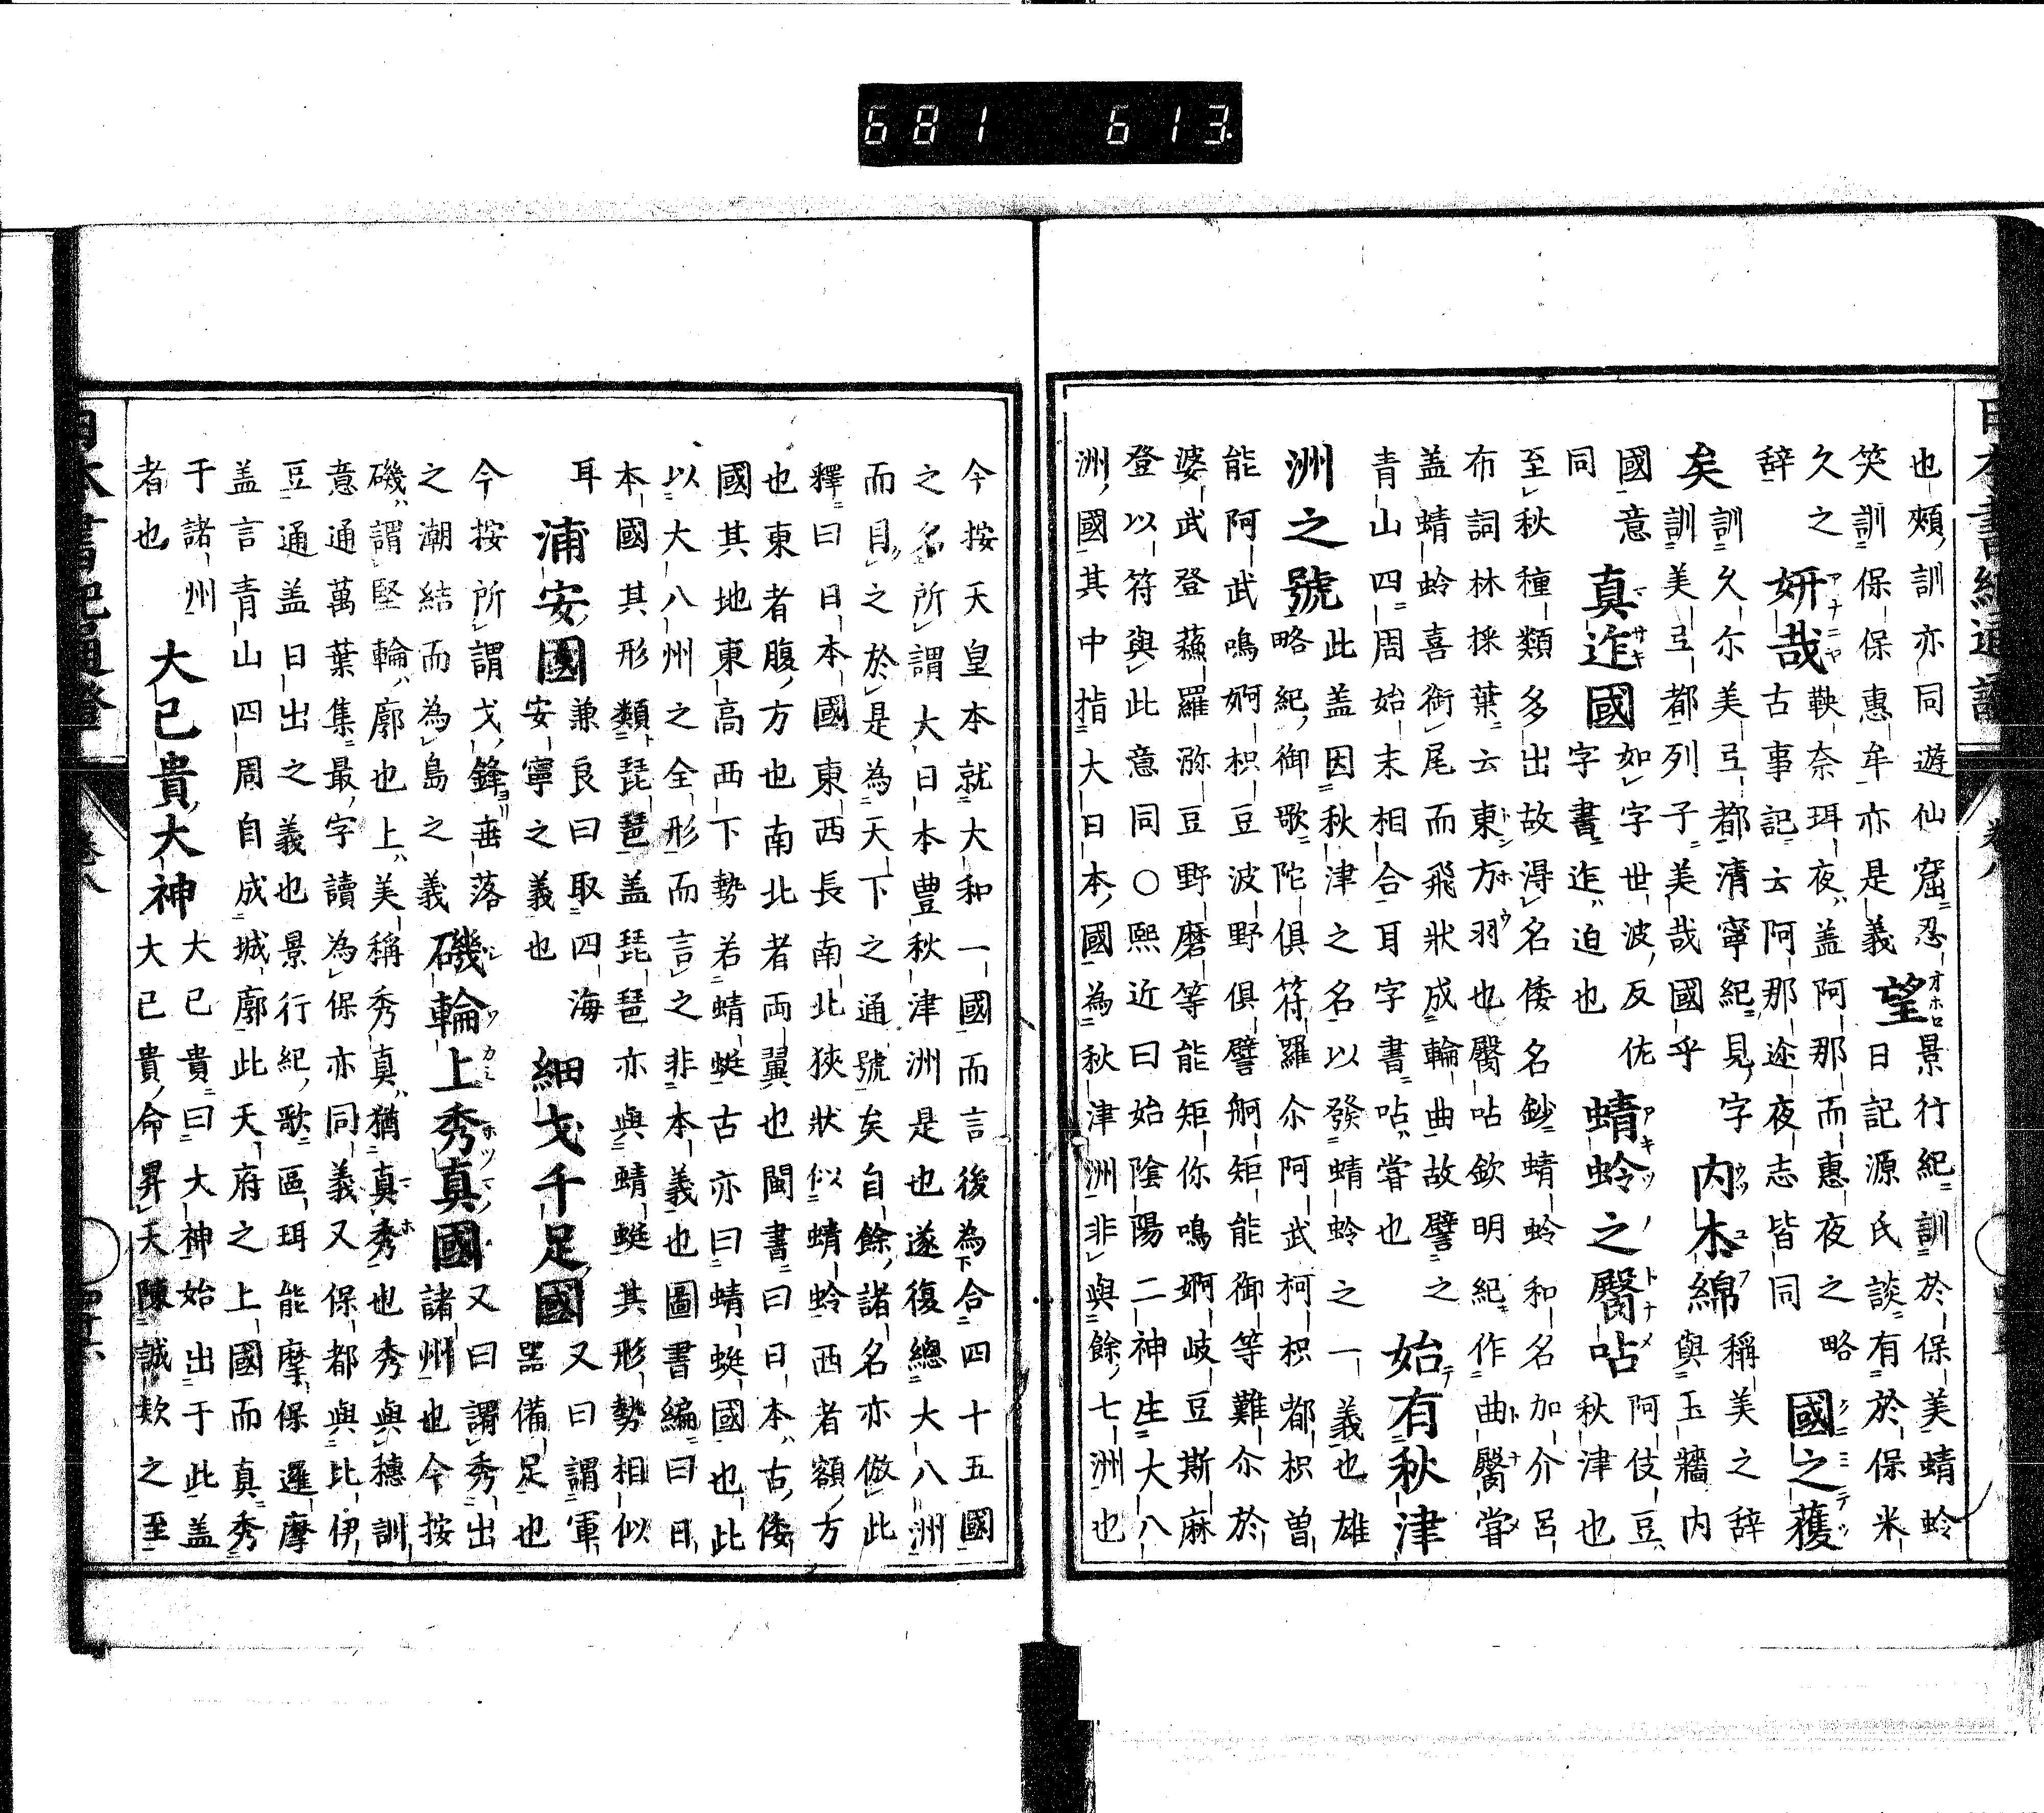 681 613
也頰訓亦同遊仙窟忍 望 景行紀訓於保美蜻蛉
笑訓保保惠牟亦是義 日記源氏談有於保米
久之 鞅奈珥夜蓋阿那而惠夜之略 國之獲
辞 妍哉 古事記云阿那途夜志皆同
矣 訓久尓美弖都清寧紀見字 内木綿 稱美之辞
訓美弖都列子美哉國乎 與玉牆内
國意 真迮國 如字世波反佐 蜻蛉之臀呫 阿伎豆
同 字書迮迫也 秋津也
至秋種類多出故得名倭名鈔蜻蛉和名加介呂
布詞林採葉云東方羽也臀呫欽明紀作曲臀甞
蓋蜻蛉喜銜尾而飛狀成輪曲故譬之 始有秋津
青山四周始末相合耳字書呫甞也
洲之號 此蓋因秋津之名以發蜻蛉之一義也雄
略紀御歌陀倶符羅尒阿武柯枳都枳曽
能阿武鳴婀枳豆波野倶譬舸矩能御等難尒於
婆武登蘓羅瀰豆野磨等能矩你鳴婀岐豆斯麻
登以符與此意同○熙近曰始陰陽二神生大八
洲國其中指大日本國為秋津洲非與餘七洲也
今按天皇本就大和一國而言後為合四十五國
之名所謂大日本豊秋津洲是也遂復總大八洲
而目之於是為天下之通號矣自餘諸名亦倣此
釋曰日本國東西長南北狹狀似蜻蛉西者額方
也東者腹方也南北者両翼也閩書曰日本古倭
國其地東高西下勢若蜻蜓古亦曰蜻蜓國也此
以大八州之全形而言之非本義也圖書編曰日
本國其形類琵琶蓋琵琶亦與蜻蜓其形勢相似
耳 浦安國 兼良曰取四海 細戈千足國 又曰謂軍
安寧之義也 器備足也
今按所謂戈鋒垂落 磯輪上秀真國 又曰謂秀出
之潮結而為島之義 諸州也今按
磯謂堅輪廓也上美稱秀真猶真秀也秀與穗訓
意通萬葉集最字讀為保亦同義又保都與比伊
豆通蓋日出之義也景行紀歌區珥能摩保邏摩
蓋言青山四周自成城廓此天府之上國而真秀
于諸州 大已貴大神 大已貴曰大神始出于此蓋
者也 大已貴命昇天陳誠欵之至